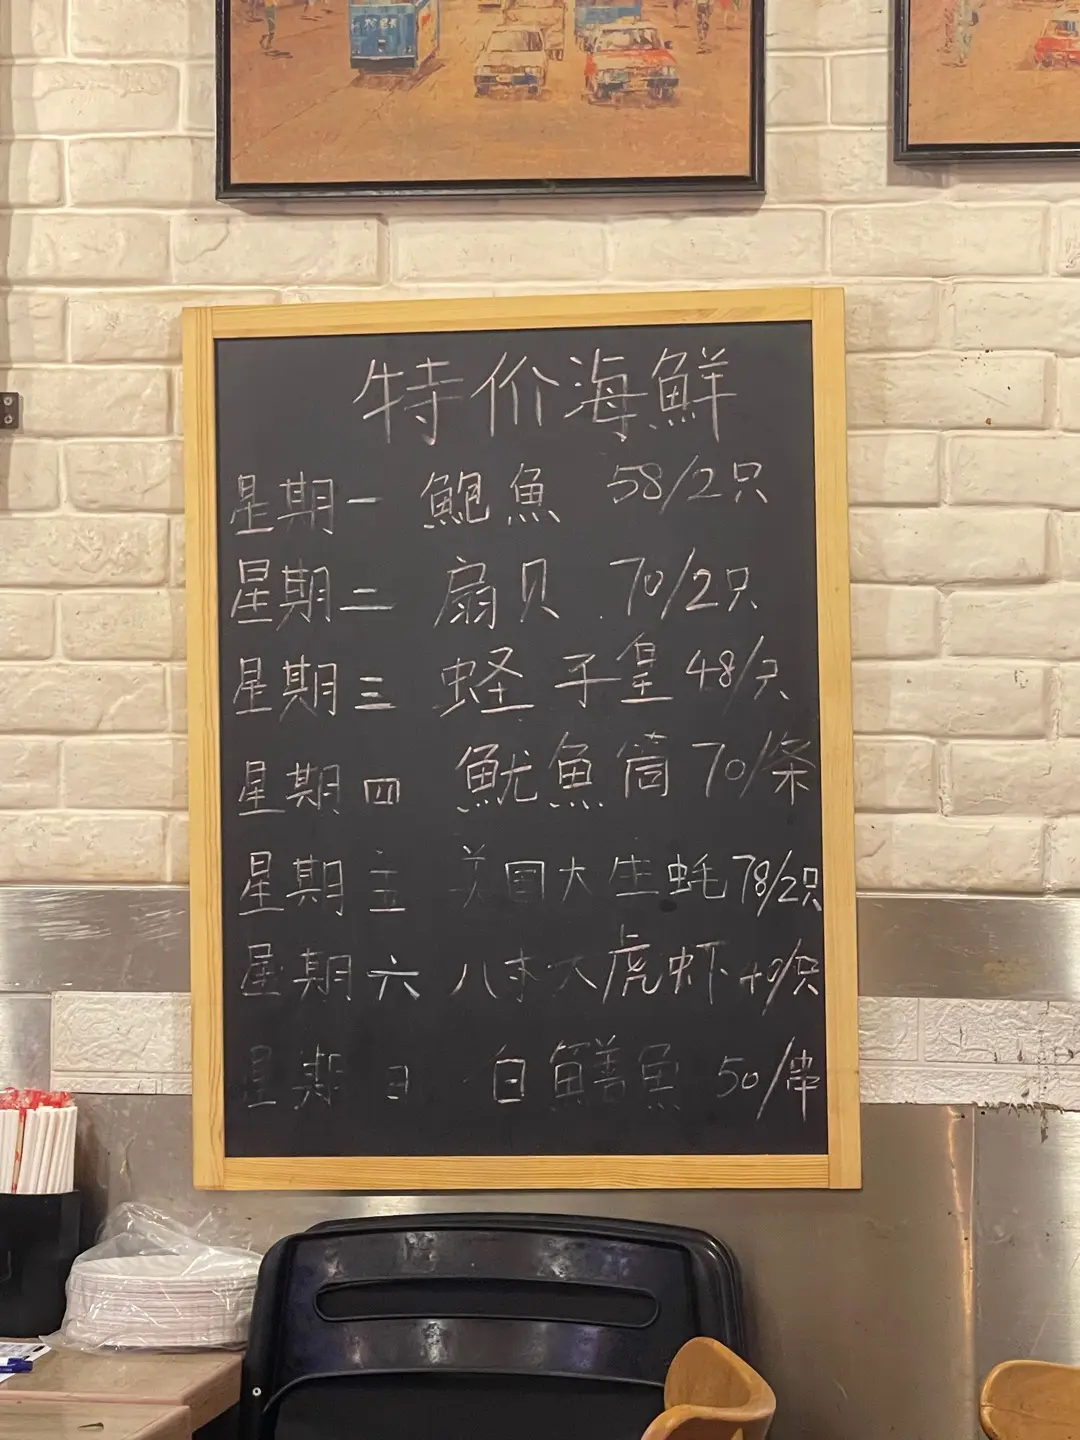 特价海鲜
星期一 鮑魚 58/2只
星期二 扇贝 70/2只
星期三 蛏子皇 48/只
星期四 魷魚筒 70/条
星期五 美国大生蚝 78/2只
星期六 八寸大虎虾 40/只
星期日 白鱔魚 50/串